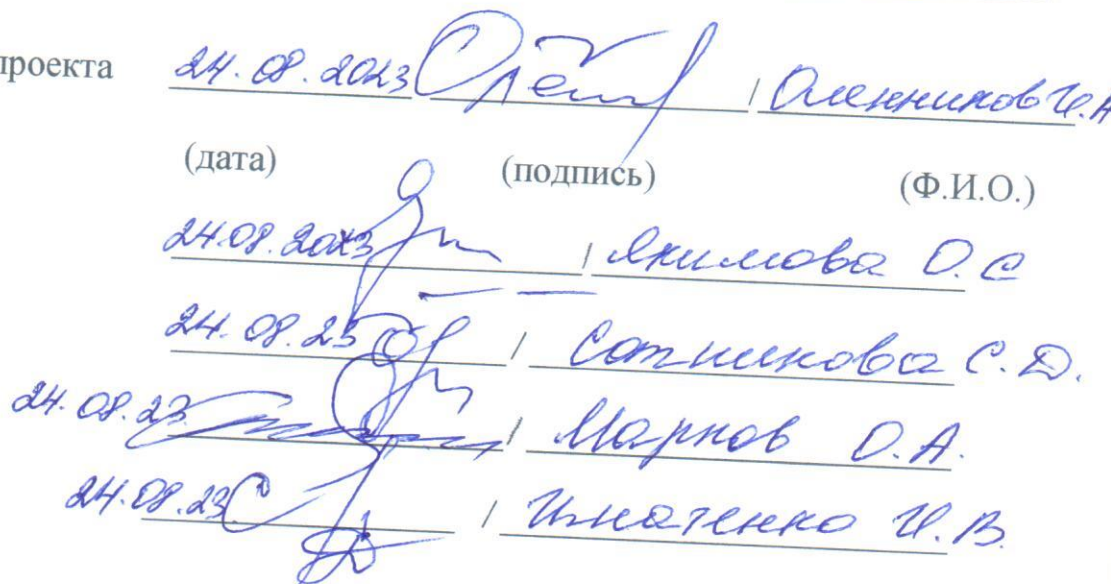 проекта 24.08.2023 / Оленников И.А
(дата) (подпись) (Ф.И.О.)
24.08.2023 / Якимова О.С
24.08.23 / Сотникова С.Д.
24.08.23 / Марков О.А.
24.08.23 / Игнатенко И.В.